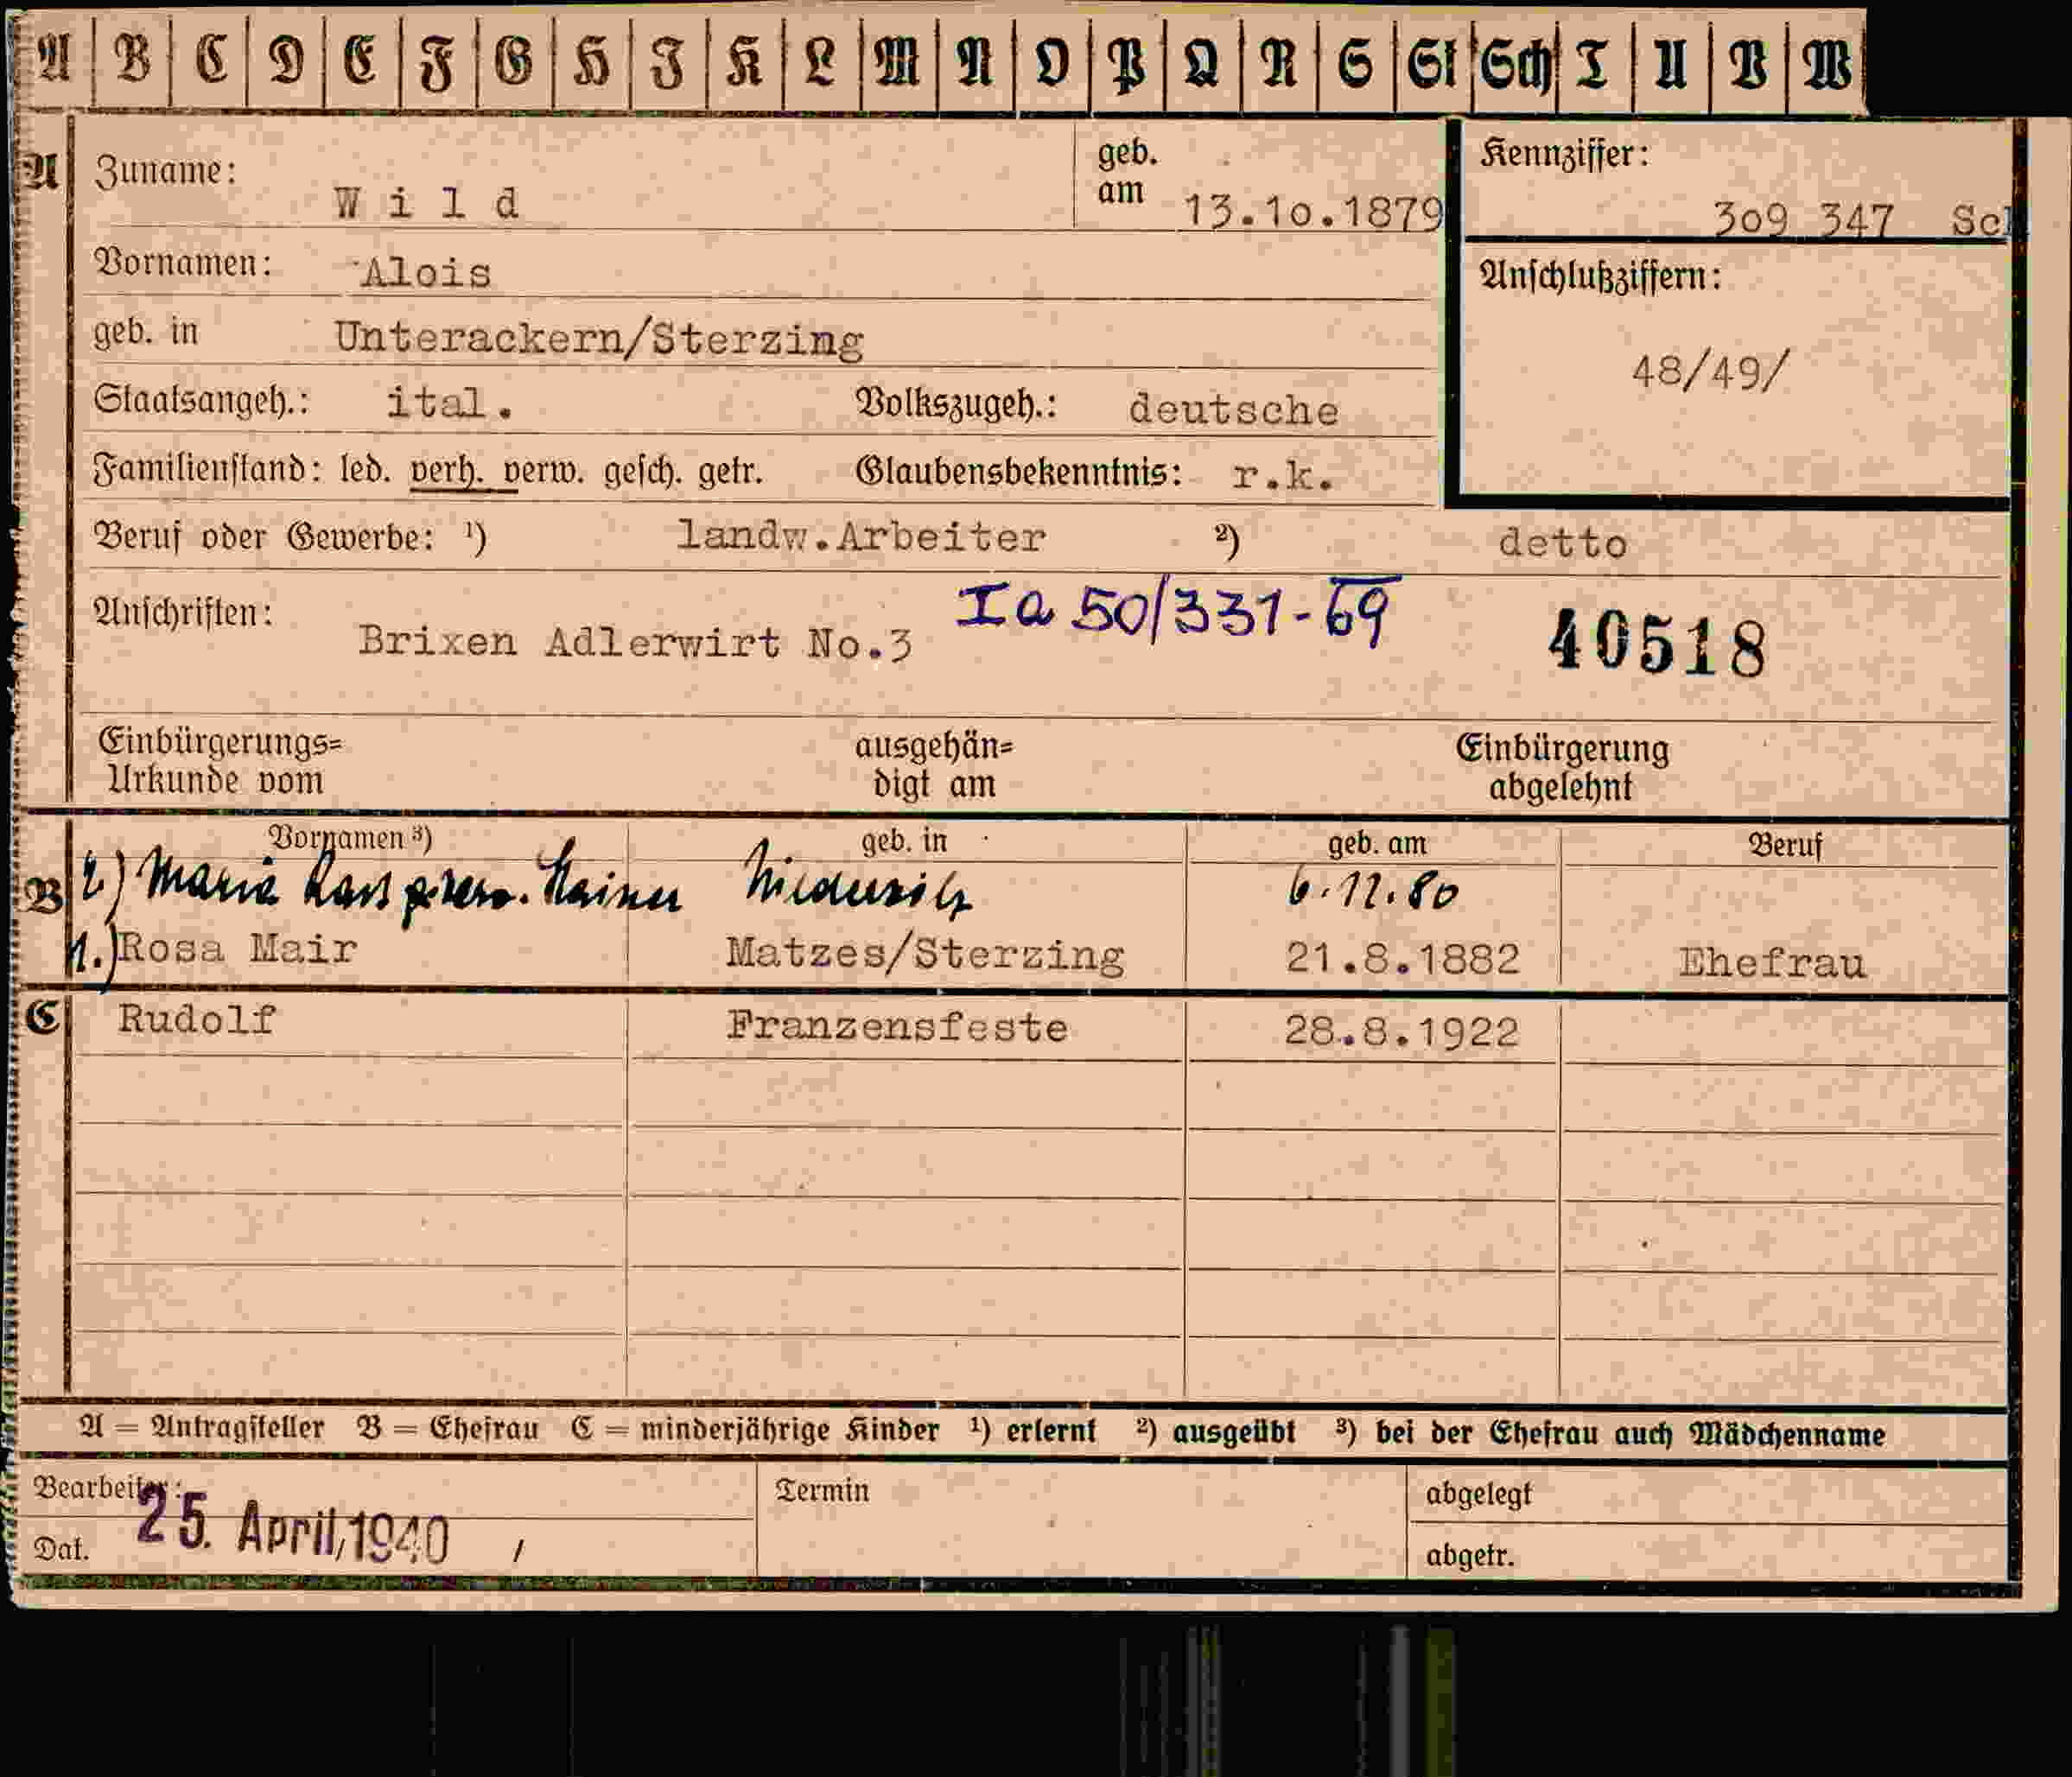 A B C D E F G H I K L M N O P Q R S St Sch T U V W
A Zuname: Wild geb. am 13.10.1879 Kennziffer: 309 347 Sch
Vornamen: Alois Anschlußziffern: 48/49/
geb. in Unterackern/Sterzing
Staatsangeh.: ital. Volkszugeh.: deutsche
Familienstand: led. verh. verw. gesch. getr. Glaubensbekenntnis: r.k.
Beruf oder Gewerbe: ¹) landw.Arbeiter ²) detto
Anschriften: Brixen Adlerwirt No.3 Ia 50/331-69 40518
Einbürgerungs= ausgehän= Einbürgerung
Urkunde vom digt am abgelehnt
Vornamen ³) geb. in geb. am Beruf
B 2) Maria 6.12.80
1.) Rosa Mair Matzes/Sterzing 21.8.1882 Ehefrau
C Rudolf Franzensfeste 28.8.1922
A = Antragsteller B = Ehefrau C = minderjährige Kinder ¹) erlernt ²) ausgeübt ³) bei der Ehefrau auch Mädchenname
Bearbeiter: Termin abgelegt
Dat. 25. April 1940 abgetr.